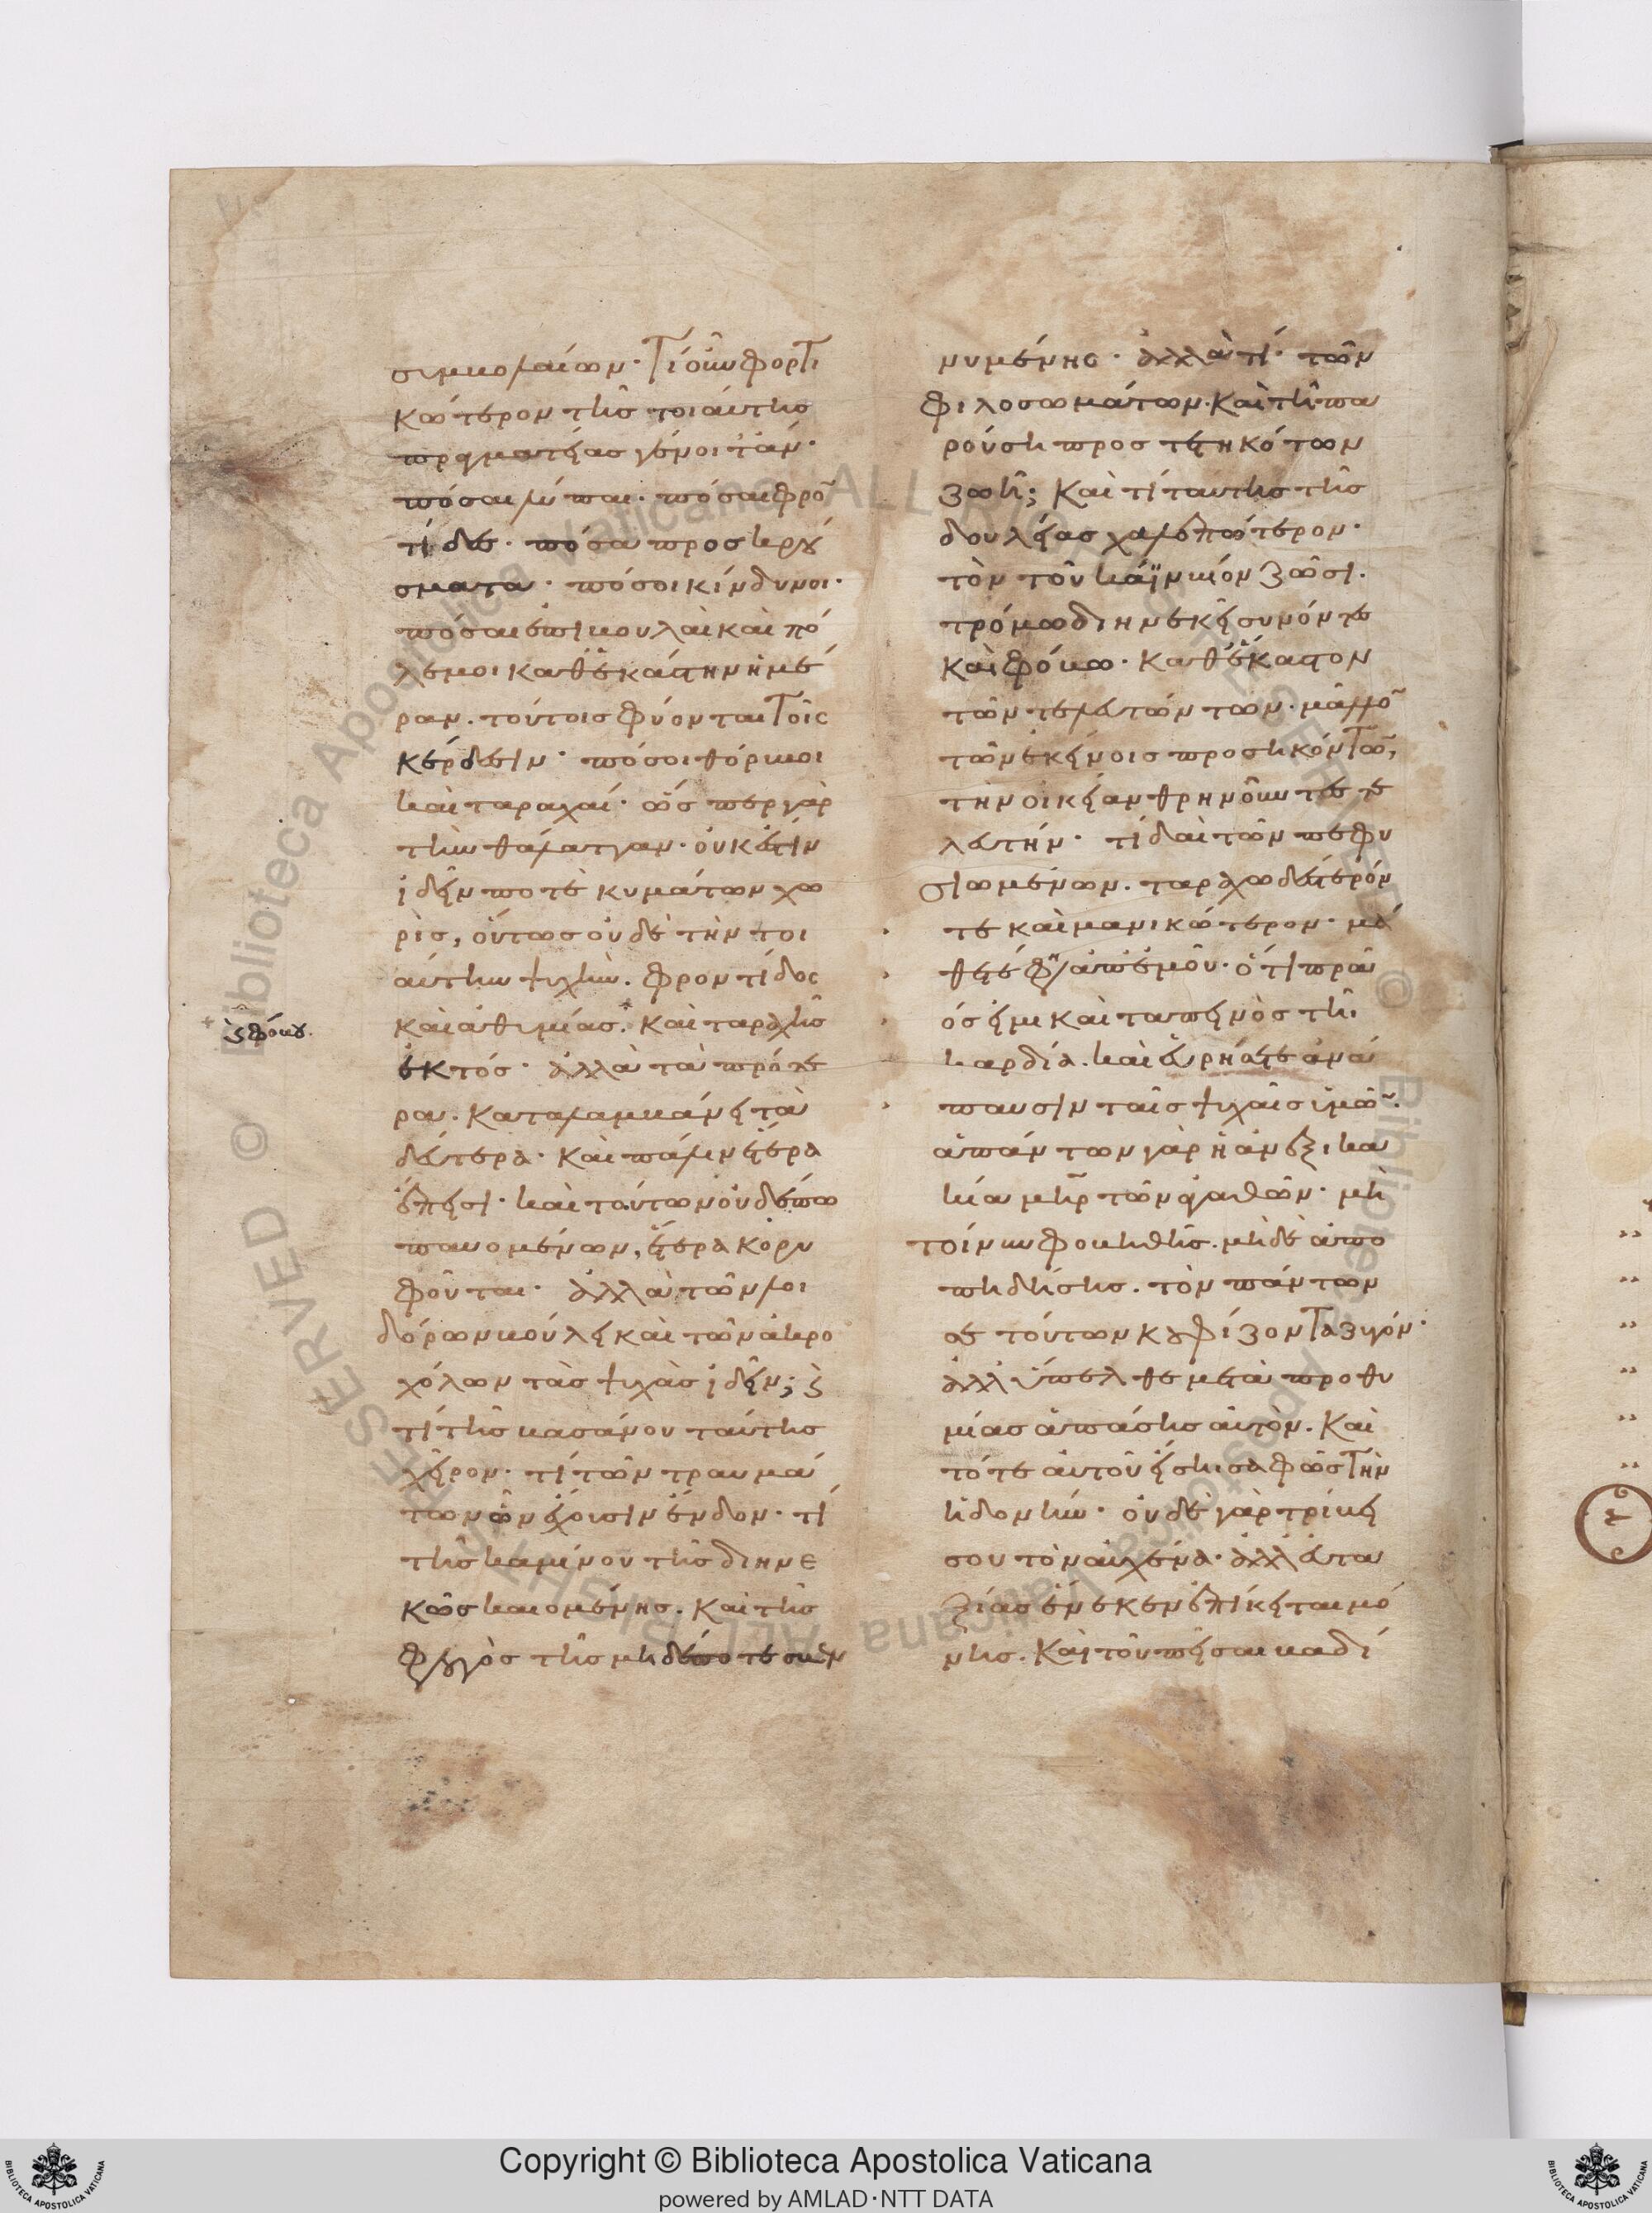 συμβολαίων· Τί οὖν φορτι
κώτερον τῆς τοιαύτης
πραγματείας γένοιτ' ἄν·
πόσαι λύπαι· πόσαι φρο̅
τίδες· πόσα προσκρού
σματα· πόσοι κίνδυνοι·
πόσαι ἐπιβουλαὶ καὶ πό
λεμοι καθ' ἑκάστην ἡμέ
ραν. τούτοις φύονται τοῖς
κέρδεσιν· πόσοι θόρυβοι
καὶ ταραχαί· ὥσπερ γὰρ
τὴν θάλατταν· οὐκ ἔστιν
ἰδεῖν ποτὲ κυμάτων χω
ρὶς, οὕτως οὐδὲ τὴν τοι
αύτην ψυχὴν. φροντίδος
καὶ ἀθυμίας. καὶ ταραχῆς
ἐκτός· ἀλλὰ τὰ πρότε
ρα. καταλαμβάνει τὰ
δεύτερα· καὶ πάλιν ἕτερα
ἔπεισι· καὶ τούτων οὐδέπω
παυομένων, ἕτερα κορυ
φοῦνται· ἀλλὰ τῶν λοι
δόρων βούλει καὶ τῶν ἀκρο
χόλων τὰς ψυχὰς ἰδεῖν; ϗ
τί τῆς βασάνου ταύτης
χεῖρον· τί τῶν τραυμά
των ὧν ἔχουσιν ἔνδον· τί
τῆς καμίνου τῆς διηνε
κῶς καιομένης. καὶ τῆς
φλογὸς τῆς μηδέποτε σβεν
ϗ φόβου.
νυμένης· ἀλλὰ τί· τῶν
φιλοσωμάτων· καὶ τῇ πα
ρούσῃ προστετηκότων
ζωῇ; καὶ τί ταύτης τῆς
δουλείας χαλεπώτερον·
τὸν τοῦ κάϊν βίον ζῶσι.
τρόμω διηνεκεῖ συνόντες
καὶ φόβω· καθ' ἕκαστον
τῶν τελευτώντων· μᾶλλο̅
τῶν ἐκείνοις προσηκόντω̅,
τὴν οἰκείαν θρηνοῦντες τε
λευτήν· τί δαὶ τῶν πεφυ
σιωμένων. ταραχωδέστερόν
τε καὶ μανικώτερον· μά
θετέ φη(σιν) ἀπ' ἐμοῦ· ὅτι πρᾶ
ός εἰμι καὶ ταπεινὸς τῇ
καρδία. καὶ εὑρήσετε ἀνά
παυσιν ταῖς ψυχαῖς ὑμῶ̅·
ἁπάντων γὰρ ἡ ἀνεξικα
κία μη̅ρ τῶν ἀγαθῶν· μὴ
τοίνυν φοβηθῇς. μηδὲ ἀπο
πηδήσης. τὸν πάντων
σε τούτων κουφίζοντα ζυγόν·
ἀλλ' ὕπελθε μετὰ προθυ
μίας ἁπάσης αὐτὸν. καὶ
τότε αὐτοῦ εἴση σαφῶς τὴν
ἡδονήν· οὐδὲ γὰρ τρίβει
σου τὸν αὐχένα· ἀλλ' εὐτα
ξίας ἕνεκεν ἐπίκειται μό
νης. καὶ τοῦ πεῖσαι βαδί